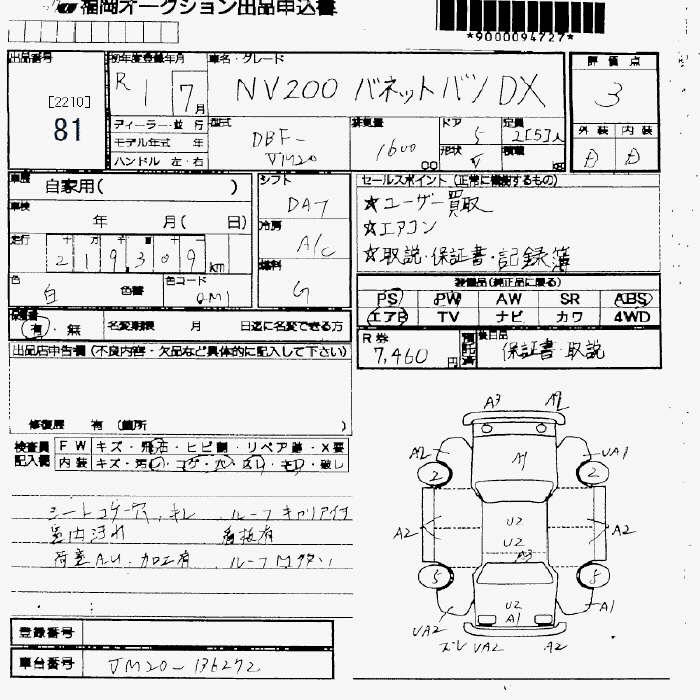 福岡オークション出品申込書
*9000094727*
出品番号
[2210]
81
初年度登録年月
R 1 7月
車名・グレード
NV200 バネットバン DX
評価点
3
ディーラー・並行
モデル年式 年
ハンドル 左・右
型式
DBF-
VM20
排気量
1600
CC
ドア
5
形状
V
定員
2[5]人
積載
kg
外装 内装
D D
車歴 自家用( )
車検
年 月( 日)
走行
十 万 千 百 十
219309km
色
白 色替
色コード
QM1
シフト
DAT
冷房
A/C
燃料
G
セールスポイント(正常に機能するもの)
☆ユーザー買取
☆エアコン
☆取説・保証書・記録簿
装備品(純正品に限る)
PS PW AW SR ABS
エアB TV ナビ カワ 4WD
保証書
有・無
名変期限 月 日迄に名変できる方
R券
7,460円
預託済
後日品
保証書・取説
出品店申告欄(不良内容・欠品など具体的に記入して下さい)
修復歴 有(箇所 )
検査員
記入欄
FW キズ・飛石・ヒビ割・リペア跡・X要
内装 キズ・汚れ・コゲ・穴・スレ・キレ・破レ
シートコゲ穴、キレ ルーフキャリア付
室内汚れ 看板有
荷室AU・加工有 ルーフMタン
A3 A2
A2 A1 UA1
2 2
U2
A2 U2 A2
A3
5 5
U2
A1 A1
UA2 ズレ UA2 A2
登録番号
車台番号 VM20-136272